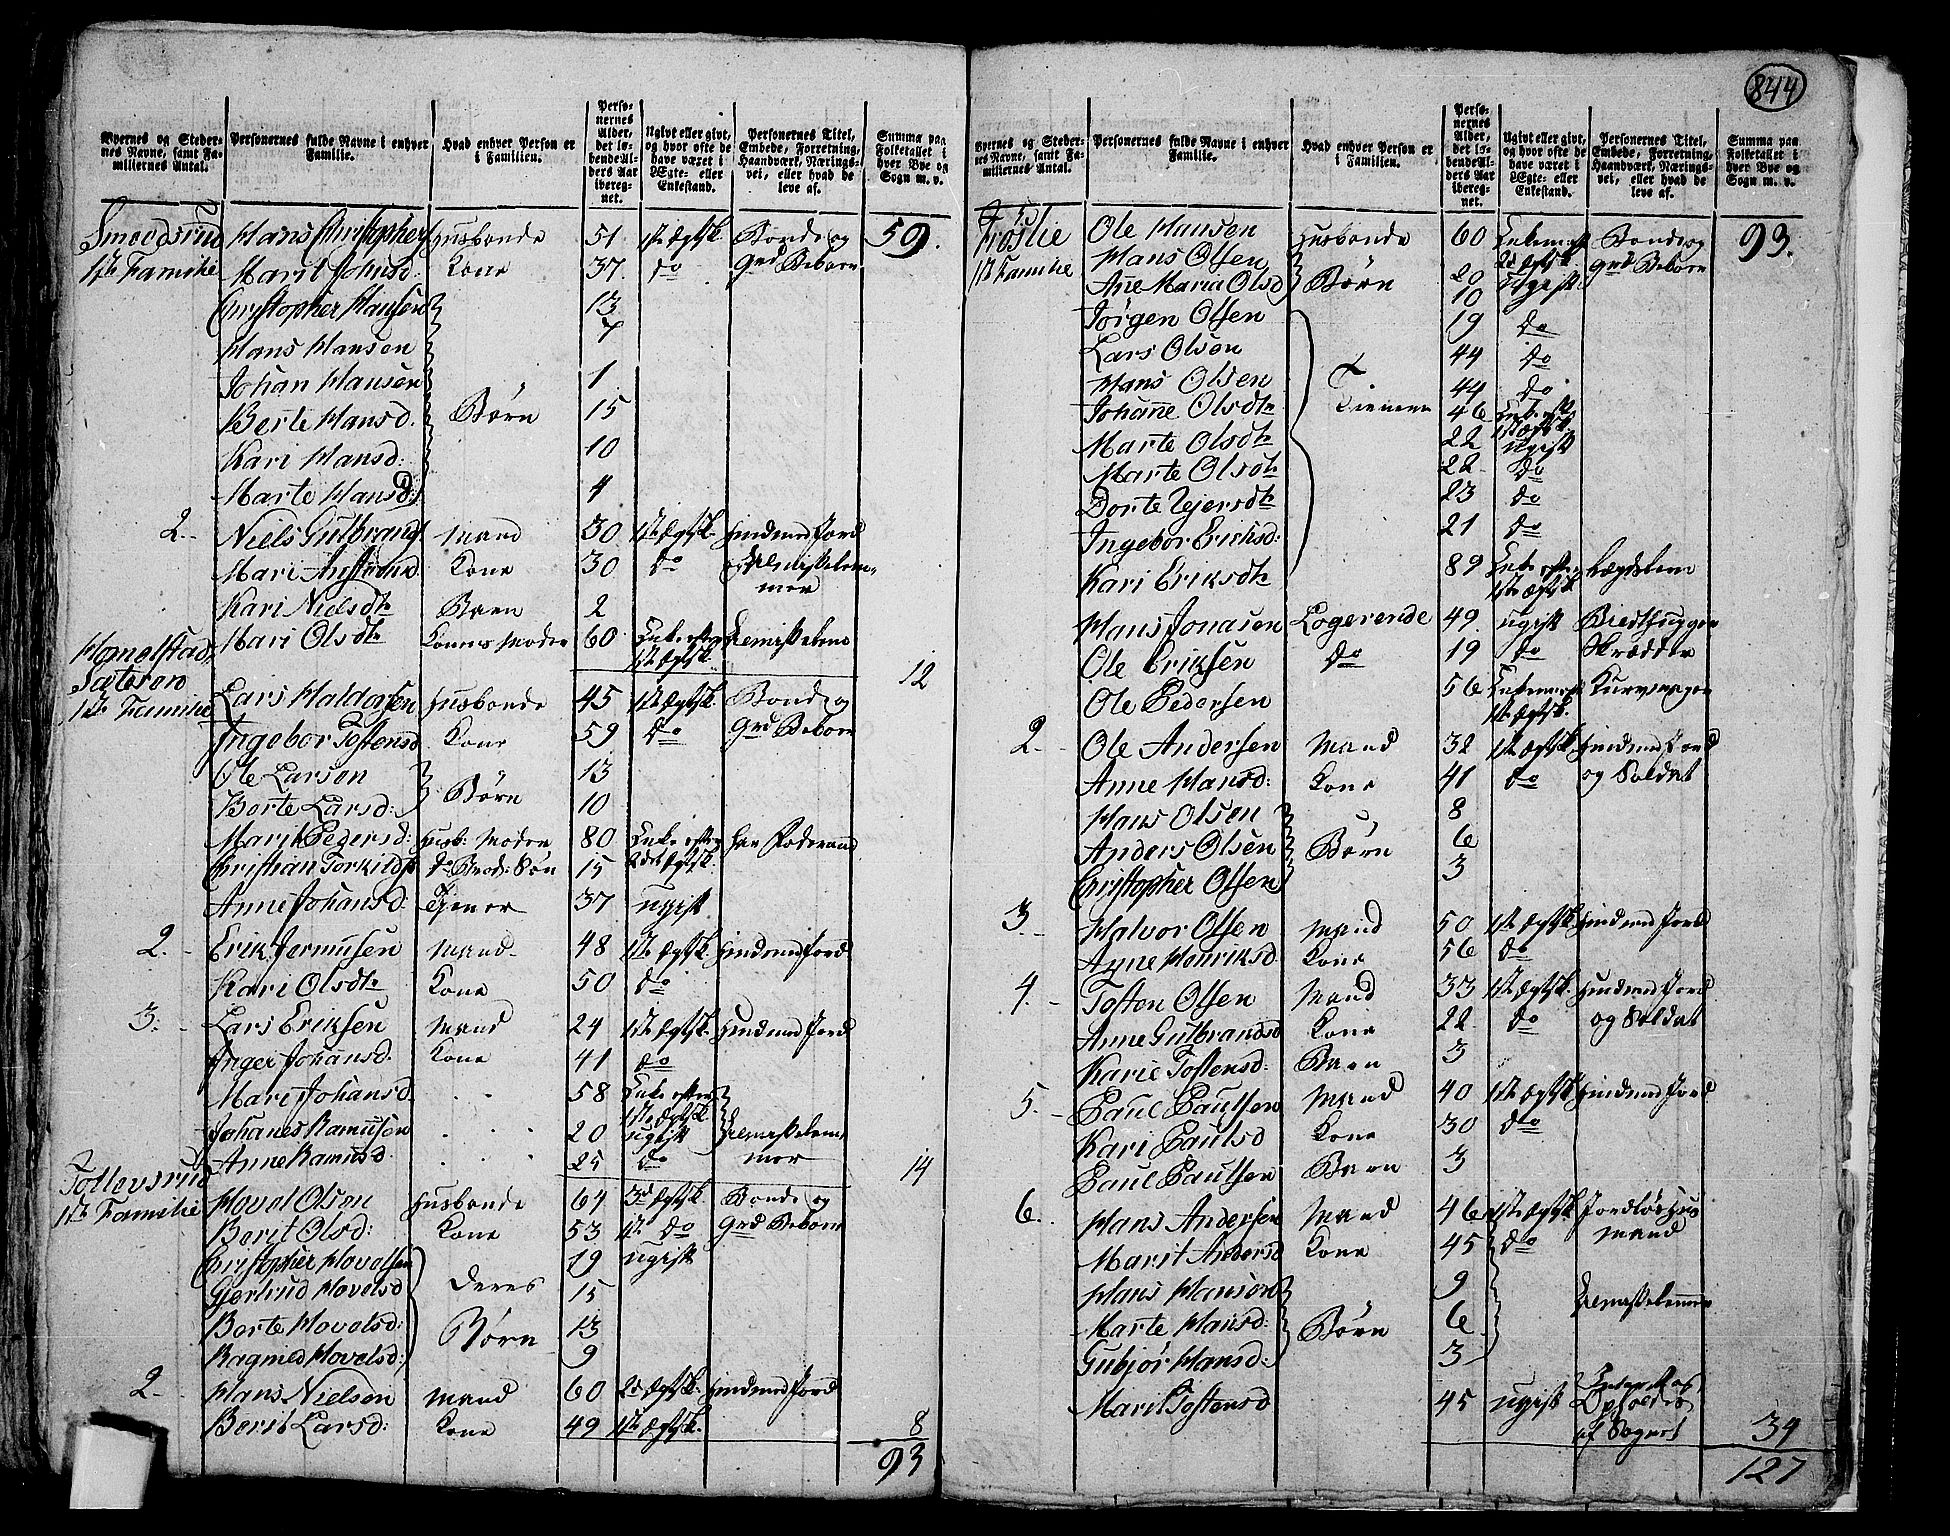 844
Byernes og Steder-
nes Navne, samt Fa-
miliernes Antal.
Personernes fulde Navne i enhver
Familie.
Hvad enhver Person er
i Familien.
Perso-
nernes
Alder,
det lø-
bende Al-
ders Aar
ibereg-
net.
Ugivt eller givt,
og hvor ofte de
have været i
Ægte- eller
Enkestand.
Personernes Titel,
Embede, Forretning,
Haandværk, Nærings-
vei, eller hvad de
leve af.
Summa paa
Folketallet i
hver Bye og
Sogn m. v.
Smedsrud Hans Christopher Husbonde 51. 1ste Ægtsk. Bonde og 59.
1ste Familie Marit Johnsd. Kone 37. do Grd Beboer
Christopher Hansen 13
Hans Hansen 7
Johan Hansen 1
Berte Hansd. Børn 15
Kari Hansd: 10
Marte Hansd: 4
2. Niels Gulbrands Mand 30 1ste Ægtsk. Huusmd Jord
Mari Amundsd Kone 30 do
Kari Nielsdtr Barn 2
Mari Olsdtr Konens Moder 60 Enke efter
1ste Ægtsk. 12
Hamelstad
Sæteren
1ste Familie Lars Haldorsen Husbonde 45 1ste Ægtsk. Bonde og
Ingebor Tostensd Kone 59 do Grd Beboer
Ole Larsen 13
Berte Larsd: Børn 10
Marit Pedersd: Husb: Moder 80 Enke efter
2det Ægtsk.
Christian Torkilds do Brod: Søn 15
Anne Johansd: Tjener 37 ugift
2. Erik Jermusen Mand 48 1ste Ægtsk. Huusmd Jord
Kari Olsdtr Kone 50 do
3. Lars Eriksen Mand 24 1ste Ægtsk. Huusmd Jord
Inger Johansd. Kone 41 do
Mari Johansd. 58 Enke efter
1ste Ægtsk
Johanes Ramusen 20 ugift
Anne Ramusd. 25 do 14
Tollevsrud
1ste Familie Hovel Olsen Husbonde 64 3d Ægtsk. Bonde og
Berit Olsd: Kone 53 1ste do Grd Beboer
Christopher Hovelsen 19 ugift
Gjertrud Hovelsd Deres 15
Berte Hovelsd: Børn 13
Ragned Hovelsd: 9
2. Hans Nielsen Mand 60 2d Ægtsk. Huusmd Jord
Berit Larsd: Kone 49 1ste Ægtsk. 8
93
Byernes og Steder-
nes Navne, samt Fa-
miliernes Antal.
Personernes fulde Navne i enhver
Familie.
Hvad enhver Person er
i Familien.
Perso-
nernes
Alder,
det lø-
bende Al-
ders Aar
ibereg-
net.
Ugivt eller givt,
og hvor ofte de
have været i
Ægte- eller
Enkestand.
Personernes Titel,
Embede, Forretning,
Haandværk, Nærings-
vei, eller hvad de
leve af.
Summa paa
Folketallet i
hver Bye og
Sogn m. v.
Frøslie Ole Hansen Husbonde 60 Enkemand Bonde og 93.
1ste Familie Hans Olsen 20 Grd Beboer
Ane Maria Olsd Børn 10 ugift
Jørgen Olsen 19 do
Lars Olsen 44 do
Hans Olsen 44 do
Johanne Olsdtr Tienere 46 Enke eft
1ste Ægtsk.
Marte Olsdtr 22 ugift
Marte Olsdtr 22 do
Dorte Ejersdtr 23 do
Ingebor Eriksd: 21 do
Kari Eriksdtr 89 Enke efter Lægdslem
1ste Ægtsk
Hans Jonasen Logerende 49 ugift
Ole Eriksen do 19 do Skrædder
Ole Pedersen 56 Enkemand
1ste Ægtsk.
2. Ole Andersen Mand 32 1ste Ægtsk Huusmd Jord
Anne Hansd: Kone 41 do og Soldat
Hans Olsen 8
Anders Olsen Børn 6
Christopher Olsen 3
3. Halvor Olsen Mand 50 1ste Ægtsk Huusmd Jord
Anne Henriksd Kone 56 do
4. Tosten Olsen Mand 33 1ste Ægtsk. Huusmd Jord
Anne Gulbrandsd Kone 22 do og Soldat
Karie Tostensd: Barn 3
5. Paul Paulsen Mand 40 1ste Ægtsk Huusmd Jord
Kari Paulsd Kone 30 do
Paul Paulsen Barn 3
6. Hans Andersen Mand 46 1ste Ægtsk Jordløs Huus
Marit Andersd Kone 45 do mand
Hans Hansen 9
Marte Hansd: Børn 6
Gubjør Hansd: 3
Marit Tostensd 45 ugift
af Sognet 34
127